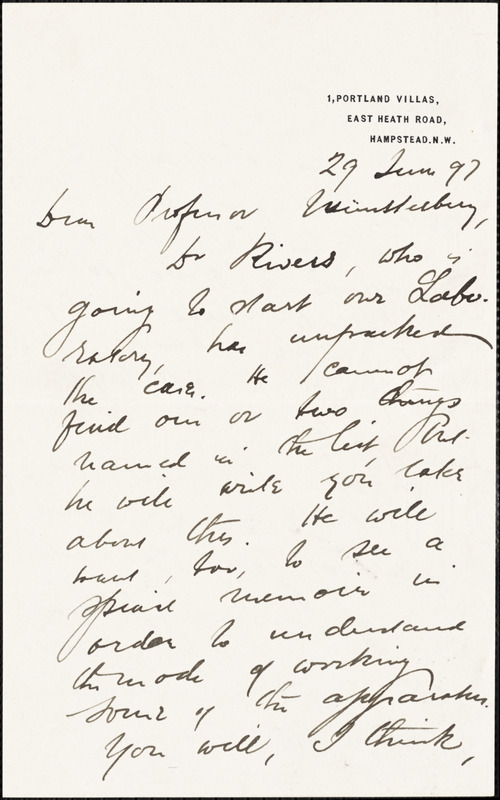 1, PORTLAND VILLAS,
EAST HEATH ROAD,
HAMPSTEAD. N.W.
29 June 97
Dear Professor Münsterberg,
Dr Rivers, who is
going to start our Labo-
ratory, has unpacked
the case. He cannot
find one or two things
named in the list, but
he will write you later
about this. He will
want, too, to see a
special memoir in
order to understand
the mode of working
some of the apparatus.
You will, I think,